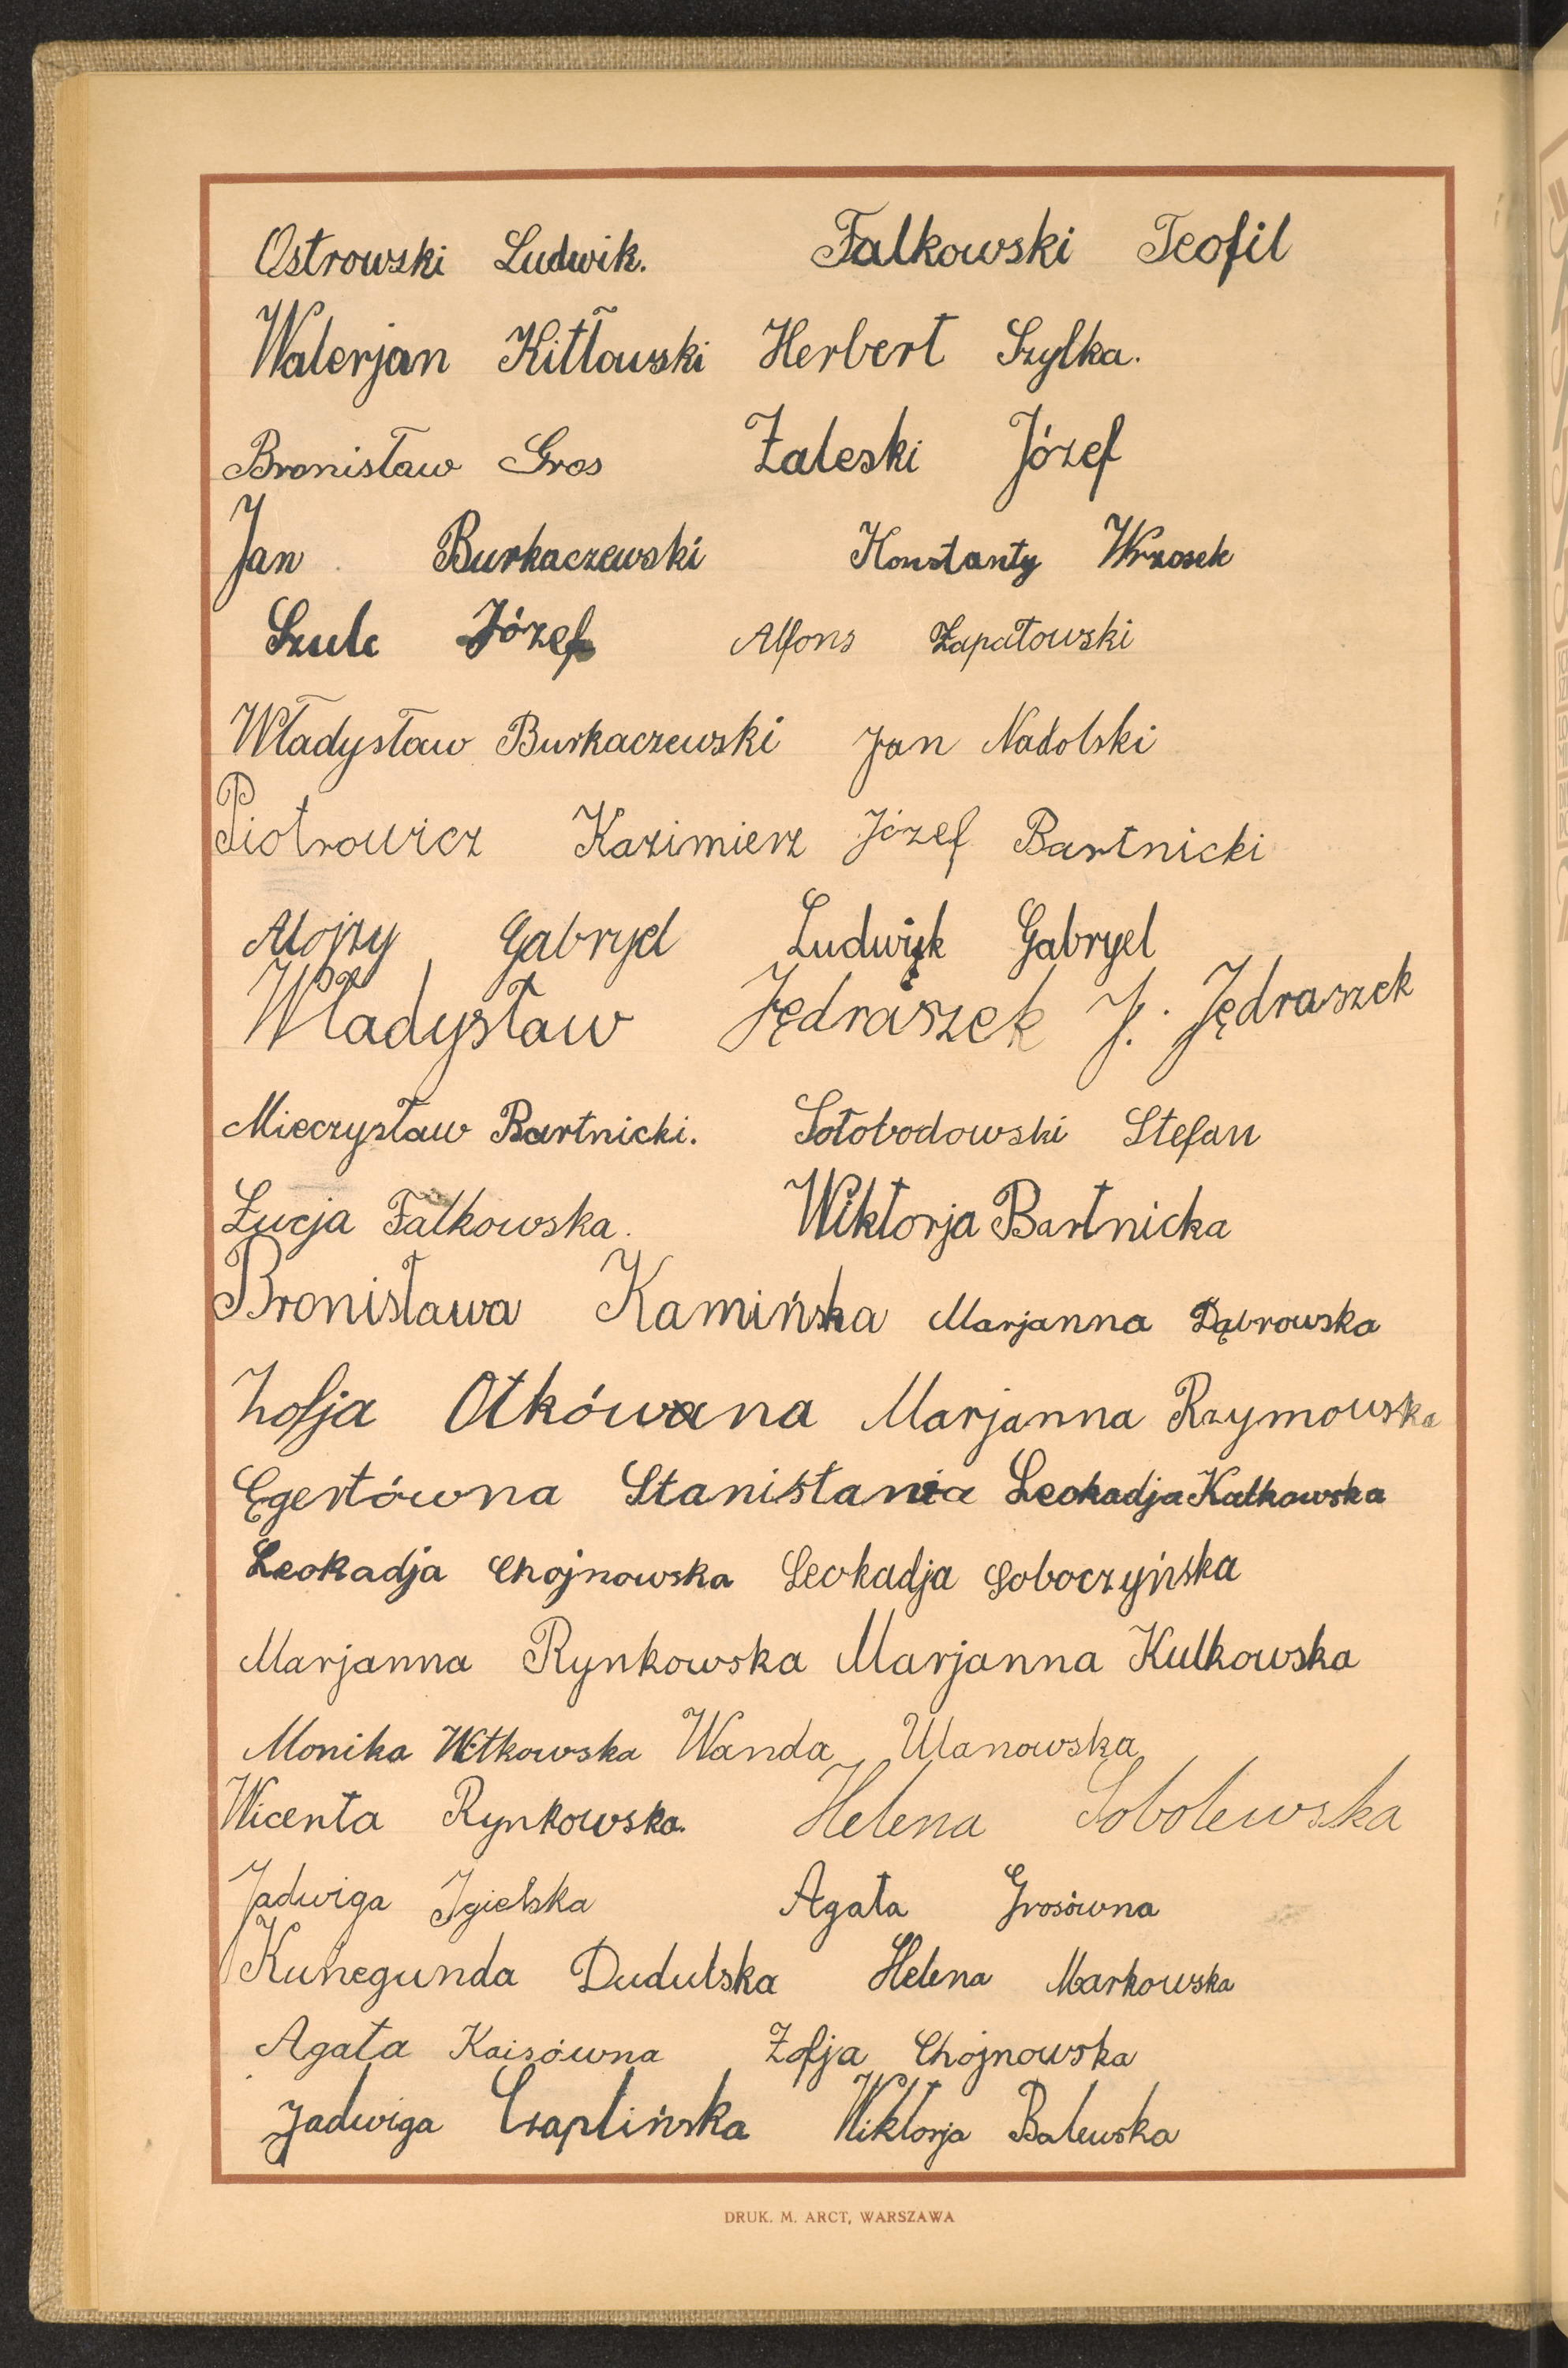 Ostrowski Ludwik. Falkowski Teofil
Walerjan Kitłowski Herbert Szylka.
Bronisław Gros Zaleski Józef
Jan Burkaczewski Konstanty Wrzosek
Szulc Józef Alfons Zapałowski
Władysław Burkaczewski Jan Nadolski
Piotrowicz Kazimierz Józef Bartnicki
Alojzy Gabryel Ludwik Gabryel
Władysław Jędraszek J. Jędraszek
Mieczysław Bartnicki. Sołobodowski Stefan
Łucja Falkowska. Wiktorja Bartnicka
Bronisława Kamińska Marjanna Dąbrowska
Zofja Otkówana Marjanna Rzymowska
Egertówna Stanisława Leokadja Kalkowska
Leokadja Chojnowska Leokadja Soboczyńska
Marjanna Rynkowska Marjanna Kulkowska
Monika Witkowska Wanda Ulanowska
Wicenta Rynkowska. Helena Sobolewska
Jadwiga Igielska Agata Grosówna
Kunegunda Dudulska Helena Markowska
Agata Kaisówna Zofja Chojnowska
Jadwiga Czaplińska Wiktorja Balewska
DRUK. M. ARCT, WARSZAWA